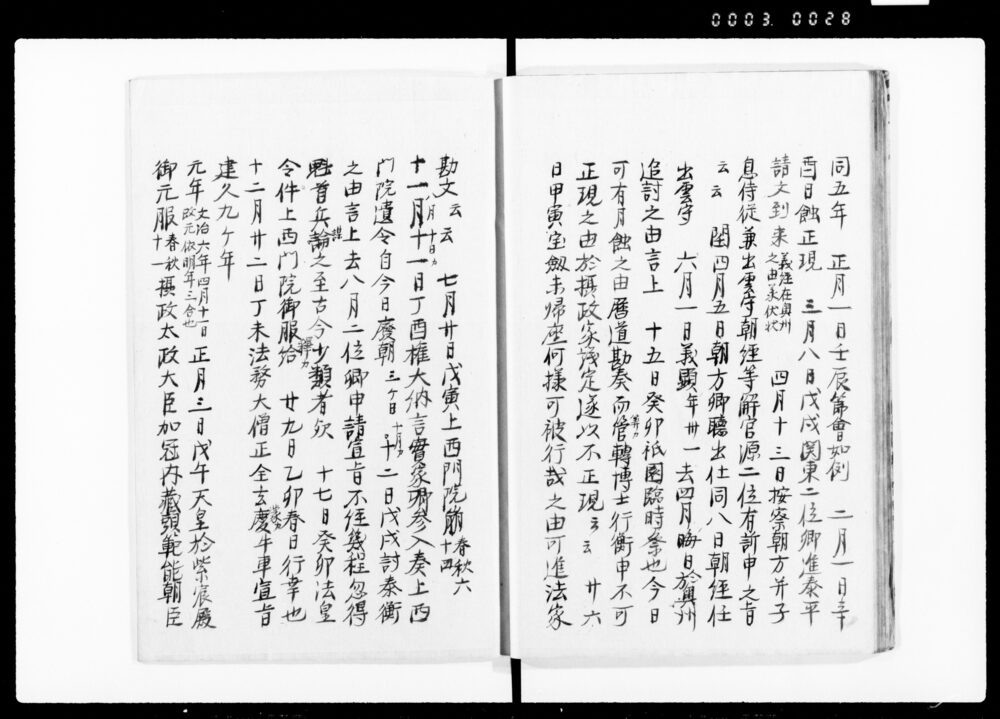 0003 0028
同五年 正月一日壬辰節會如例 二月一日辛
酉日蝕正現 三月八日戊戌関東二位卿進泰平
請文到来 義経在奥州之由承伏状 四月十三日按察朝方并子
息侍従兼出雲守朝経等解官源二位有訴申之旨
云云 閏四月五日朝方卿聴出仕同八日朝経任
出雲守 六月一日義顕年卅一去四月晦日於奥州
追討之由言上 十五日癸卯祇園臨時祭也今日
可有月蝕之由暦道勘奏而管轉博士行衡申不可
正現之由於摂政家議定遂以不正現云云 廿六
日甲寅宝劔未帰座何様可被行哉之由可進法家
勘文云云 七月廿日戊寅上西門院崩 春秋六十四
十一月十一日丁酉権大納言實家卿参入奏上西
八月 十日カ
門院遺令自今日廃朝 三ケ日 十二日戊戌討泰衡
十月カ
之由言上去八月二位卿申請宣旨不経幾程忽得
魁首兵論之至古今少類者欤 十七日癸卯法皇
令件上西門院御服給 廿九日乙卯春日行幸也
十二月廿二日丁未法務大僧正全玄慶牛車宣旨
建久九ケ年
元年 文治六年四月十一日改元依明年三合也 正月三日戊午天皇於紫宸殿
御元服 春秋十一 摂政太政大臣加冠内蔵頭範能朝臣